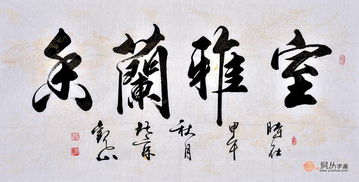 室雅蘭香
時在
甲午
秋月
易从字画